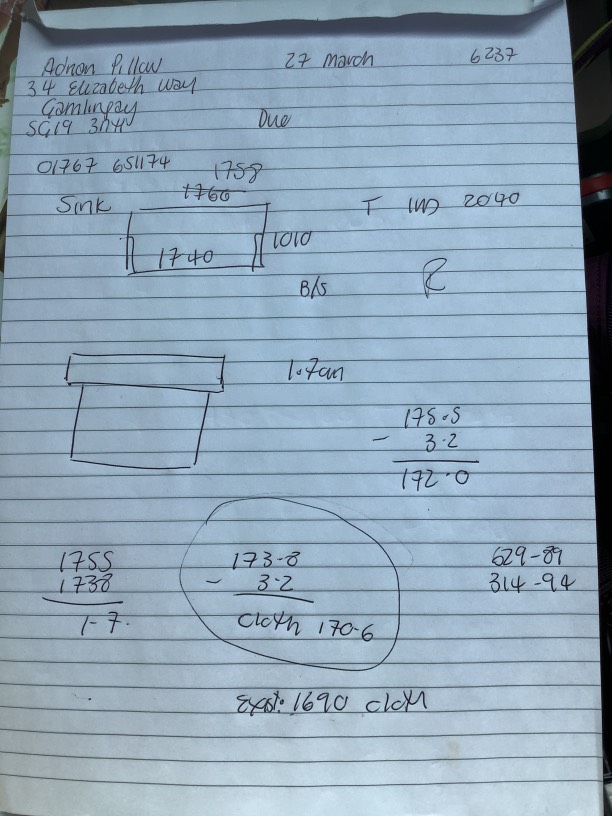 Adnan Pillow 27 March 6237
34 Elizabeth Way
Gamlingay
SG19
Due
01767 651174
1758
1760
Sink T 2040
1740 1010
B/S R
1.7cm
175.5
- 3.2
172.0
1755 173-8 629-89
1738 - 3.2 314-94
1-7. Cloth 170-6
Exist: 1690 cloth